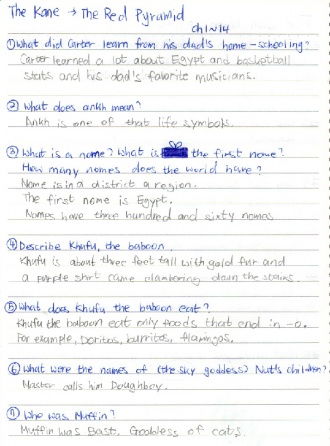 The Kane → The Red Pyramid
ch1~14
① What did Carter learn from his dad's home-schooling?
Carter learned a lot about Egypt and basketball
stats and his dad's favorite musicians.
② What does ankh mean?
Ankh is one of that life symbols.
③ What is a nome? What is the first nome?
How many nomes does the world have?
Nome is in a district a region.
The first nome is Egypt.
Nomes have three hundred and sixty nomes.
④ Describe Khufu, the baboon.
Khufu is about three foot tall with gold fur and
a purple shirt came clambering down the stairs.
⑤ What does Khufu the baboon eat?
Khufu the baboon eat only foods that end in -o.
For example, Doritos, burritos, flamingos.
⑥ What were the names of (the sky goddess) Nut's children?
Master calls him Doughboy.
⑦ Who was Muffin?
Muffin was Bast, Goddess of cats.